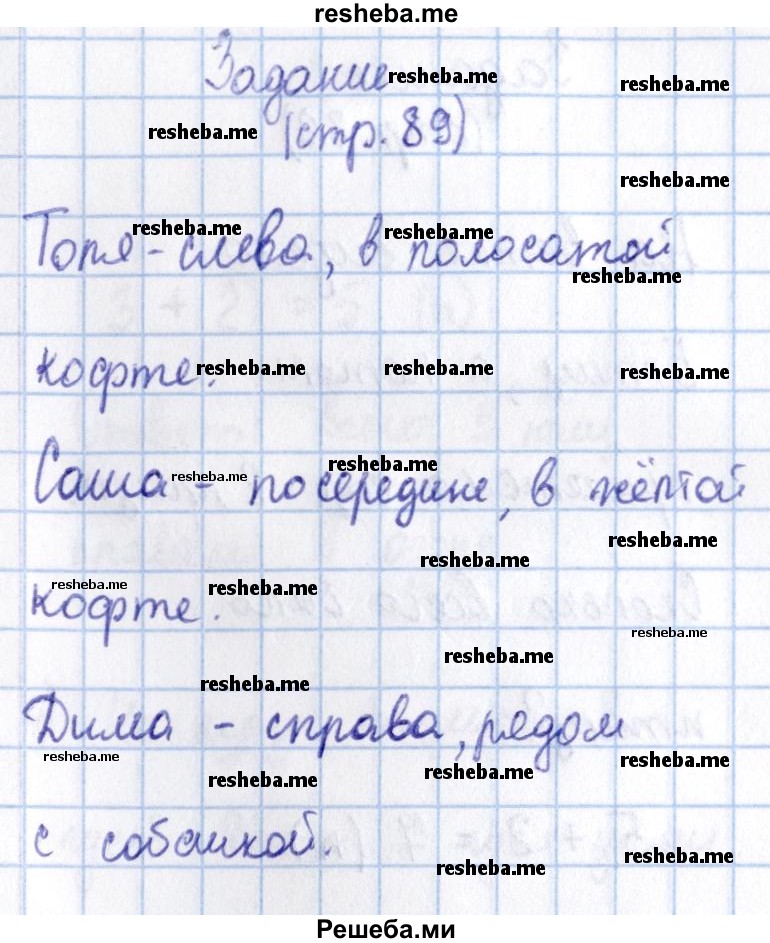 resheba.me
Задание
resheba.me
resheba.me
resheba.me
(стр. 89)
resheba.me
resheba.me
resheba.me
Толя - слева, в полосатой
resheba.me
кофте.
resheba.me
resheba.me
resheba.me
resheba.me
Саша - посередине, в жёлтой
resheba.me
resheba.me
resheba.me
resheba.me
resheba.me
кофте.
resheba.me
resheba.me
resheba.me
Дима - справа, рядом
resheba.me
resheba.me
resheba.me
resheba.me
с собакой.
resheba.me
resheba.me
Решеба.ми